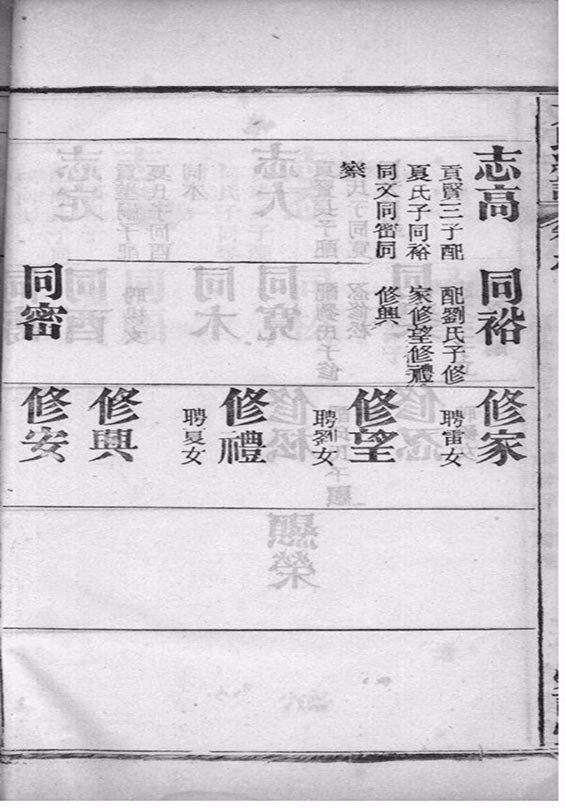 志高
貢賢三子配
夏氏子同裕
同文同密同
察
同裕
配劉氏子修
家修望修禮
修興
同密
修家
聘雷女
修望
聘劉女
修禮
聘夏女
修興
修安